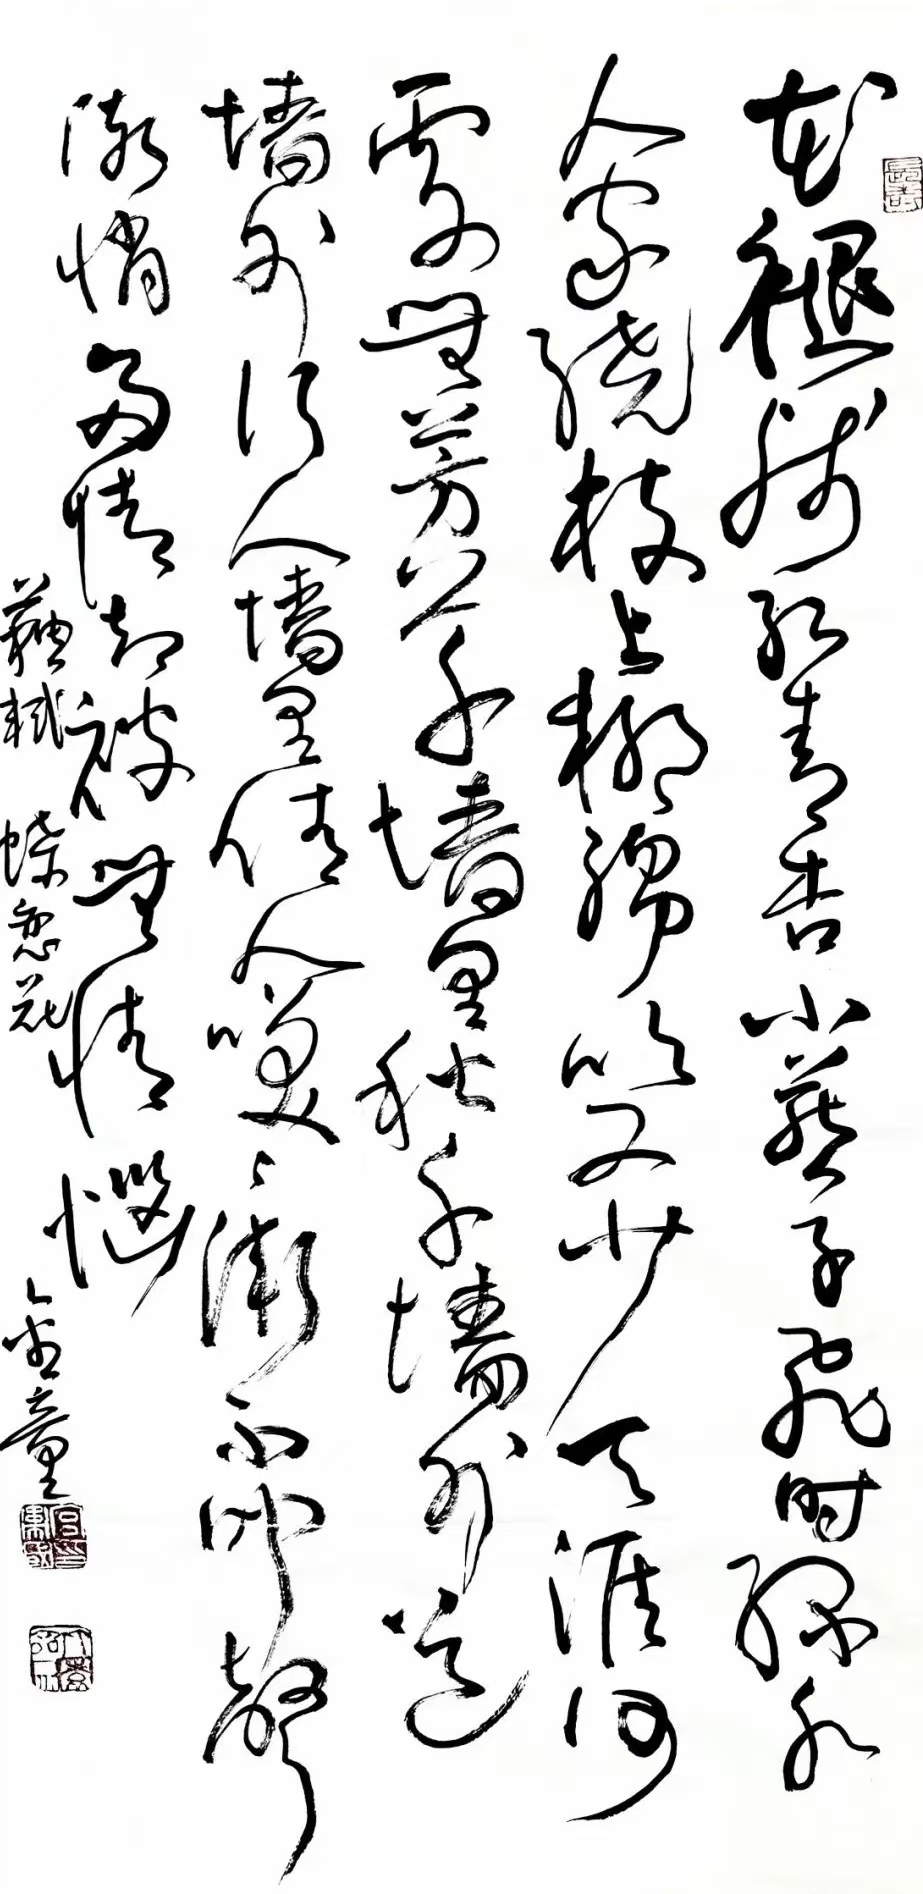 花褪残红青杏小燕子飛时绿水
人家绕枝上柳绵吹又少天涯何
處無芳草墙里秋千墙外道
墙外行人墙里佳人笑笑渐不闻聲
渐悄多情却被無情惱
蘇軾 蝶恋花
金童